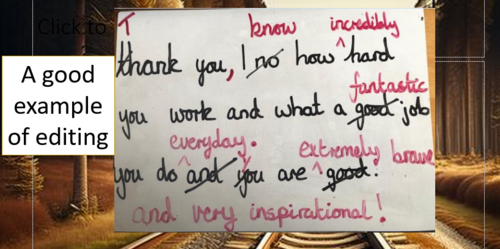 Click to
A good
example
of editing
T know incredibly
thank you, I no how ^ hard
fantastic
you work and what a good job
everyday. extremely brave
you do ^ and you are ^ good.
and very inspirational!